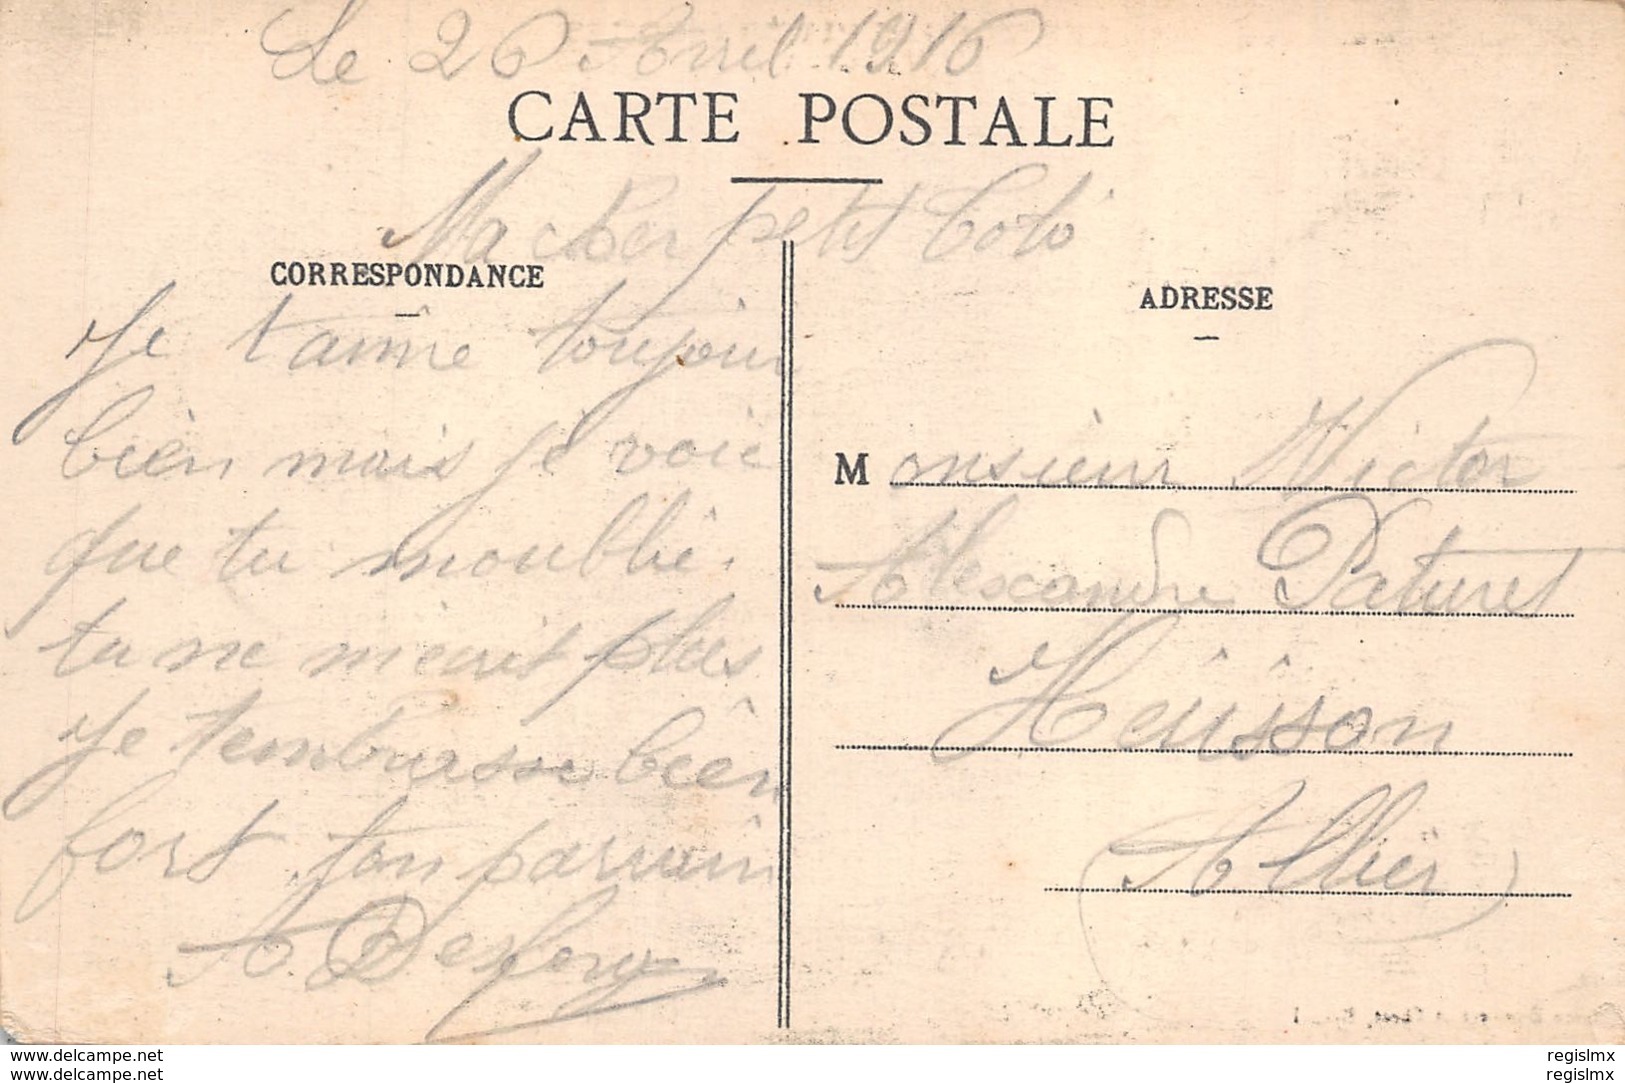 Le 26 Avril 1916
CARTE POSTALE
Ma cher petit Totó
CORRESPONDANCE
Je t'aime toujour
bien mais je voie
que tu m'oublie.
tu ne m'écrit plus
Je t'embrasse bien
fort ton parrain
A. Desfory
ADRESSE
Monsieur Victor
Alexandre Paturet
Hérisson
Allier
delcampe.net
delcampe.net
regislmx
regislmx